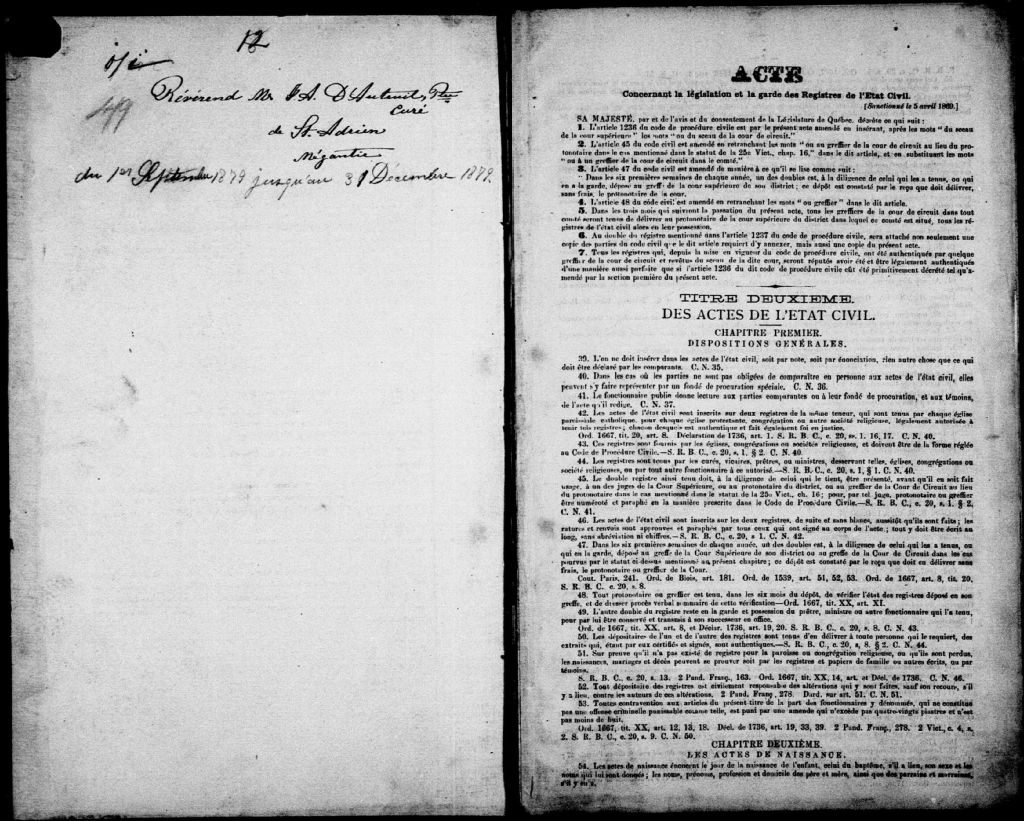 12
449
Révérend Mr F. A. D'Auteuil, Ptre
Curé
de St. Adrien
Mégantic
du 1er Septembre 1879 jusqu'au 31 Décembre 1879.
ACTE
Concernant la législation et la garde des Registres de l'Etat Civil.
[Sanctionné le 5 avril 1869.]
SA MAJESTÉ, par et de l'avis et du consentement de la Législature de Québec, décrète ce qui suit :
1. L'article 1236 du code de procédure civile est par le présent acte amendé en insérant, après les mots "du sceau
de la cour supérieure" les mots "ou du sceau de la cour de circuit."
2. L'article 45 du code civil est amendé en retranchant les mots "ou au greffier de la cour de circuit au lieu du pro-
tonotaire dans le cas mentionné dans le statut de la 25e Vict., chap. 16," dans le dit article, et en substituant les mots
"ou à un greffier de la cour de circuit dans le comté."
3. L'article 47 du code civil est amendé de manière à ce qu'il se lise comme suit :
"Dans les six premières semaines de chaque année, un des doubles est, à la diligence de celui qui les a tenus, ou qui
en a la garde, déposé au greffe de la cour supérieure de son district ; ce dépôt est constaté par le reçu que doit délivrer,
sans frais, le protonotaire de la cour.
4. L'article 48 du code civil est amendé en retranchant les mots "ou greffier" dans le dit article.
5. Dans les trois mois qui suivront la passation du présent acte, tous les greffiers de la cour de circuit dans tout
comté seront tenus de délivrer au protonotaire de la cour supérieure du district dans lequel ce comté est situé, tous les ré-
gistres de l'état civil alors en leur possession.
6. Au double du régistre mentionné dans l'article 1237 du code de procédure civile, sera attaché non seulement une
copie des parties du code civil que le dit article requiert d'y annexer, mais aussi une copie du présent acte.
7. Tous les régistres qui, depuis la mise en vigueur du code de procédure civile, ont été authentiqués par quelque
greffier de la cour de circuit et revêtus du sceau de la dite cour, seront réputés avoir été et être légalement authentiqués
d'une manière aussi parfaite que si l'article 1236 du dit code de procédure civile eût été primitivement décrété tel qu'a-
mendé par la section première du présent acte.
TITRE DEUXIEME.
DES ACTES DE L'ETAT CIVIL.
CHAPITRE PREMIER.
DISPOSITIONS GENÉRALES.
39. L'on ne doit insérer dans les actes de l'état civil, soit par note, soit par énonciation, rien autre chose que ce qui
doit être déclaré par les comparants. C. N. 35.
40. Dans les cas où les parties ne sont pas obligées de comparaître en personne aux actes de l'état civil, elles
peuvent s'y faire représenter par un fondé de procuration spéciale. C. N. 36.
41. Le fonctionnaire public donne lecture aux parties comparantes ou à leur fondé de procuration, et aux témoins,
de l'acte qu'il rédige. C. N. 37.
42. Les actes de l'état civil sont inscrits sur deux registres de la même teneur, qui sont tenus par chaque église
paroissiale catholique, pour chaque église protestante, congrégation ou autre société religieuse, légalement autorisée à
tenir tels registres ; chacun desquels est authentique et fait également foi en justice.
Ord. 1667, tit. 20, art. 8. Déclaration de 1736, art. 1. S. R. B. C., c. 20, ss. 1. 16, 17. C. N. 40.
43. Ces registres sont fournis par les églises, congrégations ou sociétés religieuses, et doivent être de la forme réglée
au Code de Procédure Civile.—S. R. B. C., c. 20, s. 1, § 2. C. N. 40.
44. Les registres sont tenus par les curés, vicaires, prêtres, ou ministres, desservant telles, églises, congrégations ou
société religieuses, ou par tout autre fonctionnaire à ce autorisé.—S. R. B. C., c. 20, s. 1, § 1. C. N. 40.
45. Le double registre ainsi tenu doit, à la diligence de celui qui le tient, être présenté, avant qu'il en soit fait
usage, à un des juges de la Cour Supérieure, ou au protonotaire du district, ou au greffier de la Cour de Circuit au lieu
du protonotaire dans le cas mentionné dans le statut de la 25e Vict., ch. 16 ; pour, par tel juge, protonotaire ou greffier
être numéroté et paraphé en la manière prescrite dans le Code de Procédure Civile.—S. R. B. C., c. 20, s. 1. § 2,
C. N. 41.
46. Les actes de l'état civil sont inscrits sur les deux registres, de suite et sans blancs, aussitôt qu'ils sont faits ; les
ratures et renvois sont approuvés et paraphés par tous ceux qui ont signé au corps de l'acte ; tout y doit être écrit au
long, sans abréviation ni chiffres.—S. R. B. C., c. 20, s. 1. C. N. 42.
47. Dans les six premières semaines de chaque année, un des doubles est, à la diligence de celui qui les a tenus, ou
qui en a la garde, déposé au greffe de la Cour Supérieure de son district ou au greffe de la Cour de Circuit dans les cas
pourvus par le statut ci-dessus mentionné au présent chapitre ; ce dépôt est constaté par le reçu que doit en délivrer sans
frais, le protonotaire ou greffier de la Cour.
Cout. Paris, 241. Ord. de Blois, art. 181. Ord. de 1539, art. 51, 52, 53. Ord. de 1667, art. 8, tit. 20,
S. R. B. C., c. 20, s. 8.
48. Tout protonotaire ou greffier est tenu, dans les six mois du dépôt, de vérifier l'état des registres déposé en son
greffe, et de dresser procès verbal sommaire de cette vérification—Ord. 1667, tit. XX, art. XI.
49. L'autre double du registre reste en la garde et possession du prêtre, ministre ou autre fonctionnaire qui l'a tenu,
pour par lui être conservé et transmis à son successeur en office.
Ord. de 1667, tit. XX, art. 8, et Déclar. 1736, art. 19, 20. S. R. B. C., c. 20, s. 8. C. N. 43.
50. Les dépositaires de l'un et de l'autre des registres sont tenus d'en délivrer à toute personne qui le requiert, des
extraits qui, étant par eux certifiés et signés, sont authentiques.—S. R. B. C., c. 20, s, 8, § 2. C. N. 44.
51. Sur preuve qu'il n'a pas existé de registre pour la paroisse ou congrégation religieuse, ou qu'ils sont perdus,
les naissances, mariages et décès peuvent se prouver soit par les registres et papiers de famille ou autres écrits, ou par
témoins.
S. R. B. C., c. 20, s. 13. 2 Pand. Franç., 163. Ord. 1667, tit. XX, 14, art. et Décl. de 1736, C. N. 46.
52. Tout dépositaire des registres est civilement responsable des altérations qui y sont faites, sauf son recours, s'il
y a lieu, contre les auteurs de ces altérations. 2 Pand. Franç., 278. Dard. sur art. 51. C. N. 51.
53. Toutes contravention aux articles du présent titre de la part des fonctionnaires y dénommés, qui ne constitue
pas une offense criminelle punissable comme telle, est puni par une amende qui n'excède pas quatre-vingts piastres et n'est
pas moins de huit.
Ord. 1667, tit. XX, art. 12, 13, 18. Décl. de 1736, art. 19, 33, 39. 2 Pand. Franç., 278. 2 Vict., c. 4, s.
2. S. R. B. C., c. 20, s. 9. C. N. 50.
CHAPITRE DEUXIÈME.
LES ACTES DE NAISSANCE.
54. Les actes de naissance énoncent le jour de la naissance de l'enfant, celui du baptême, s'il a lieu, son sexe et les
noms qui lui sont donnés ; les noms, prénoms, profession et domicile des père et mère, ainsi que des parrains et marraines,
s'il y en a.